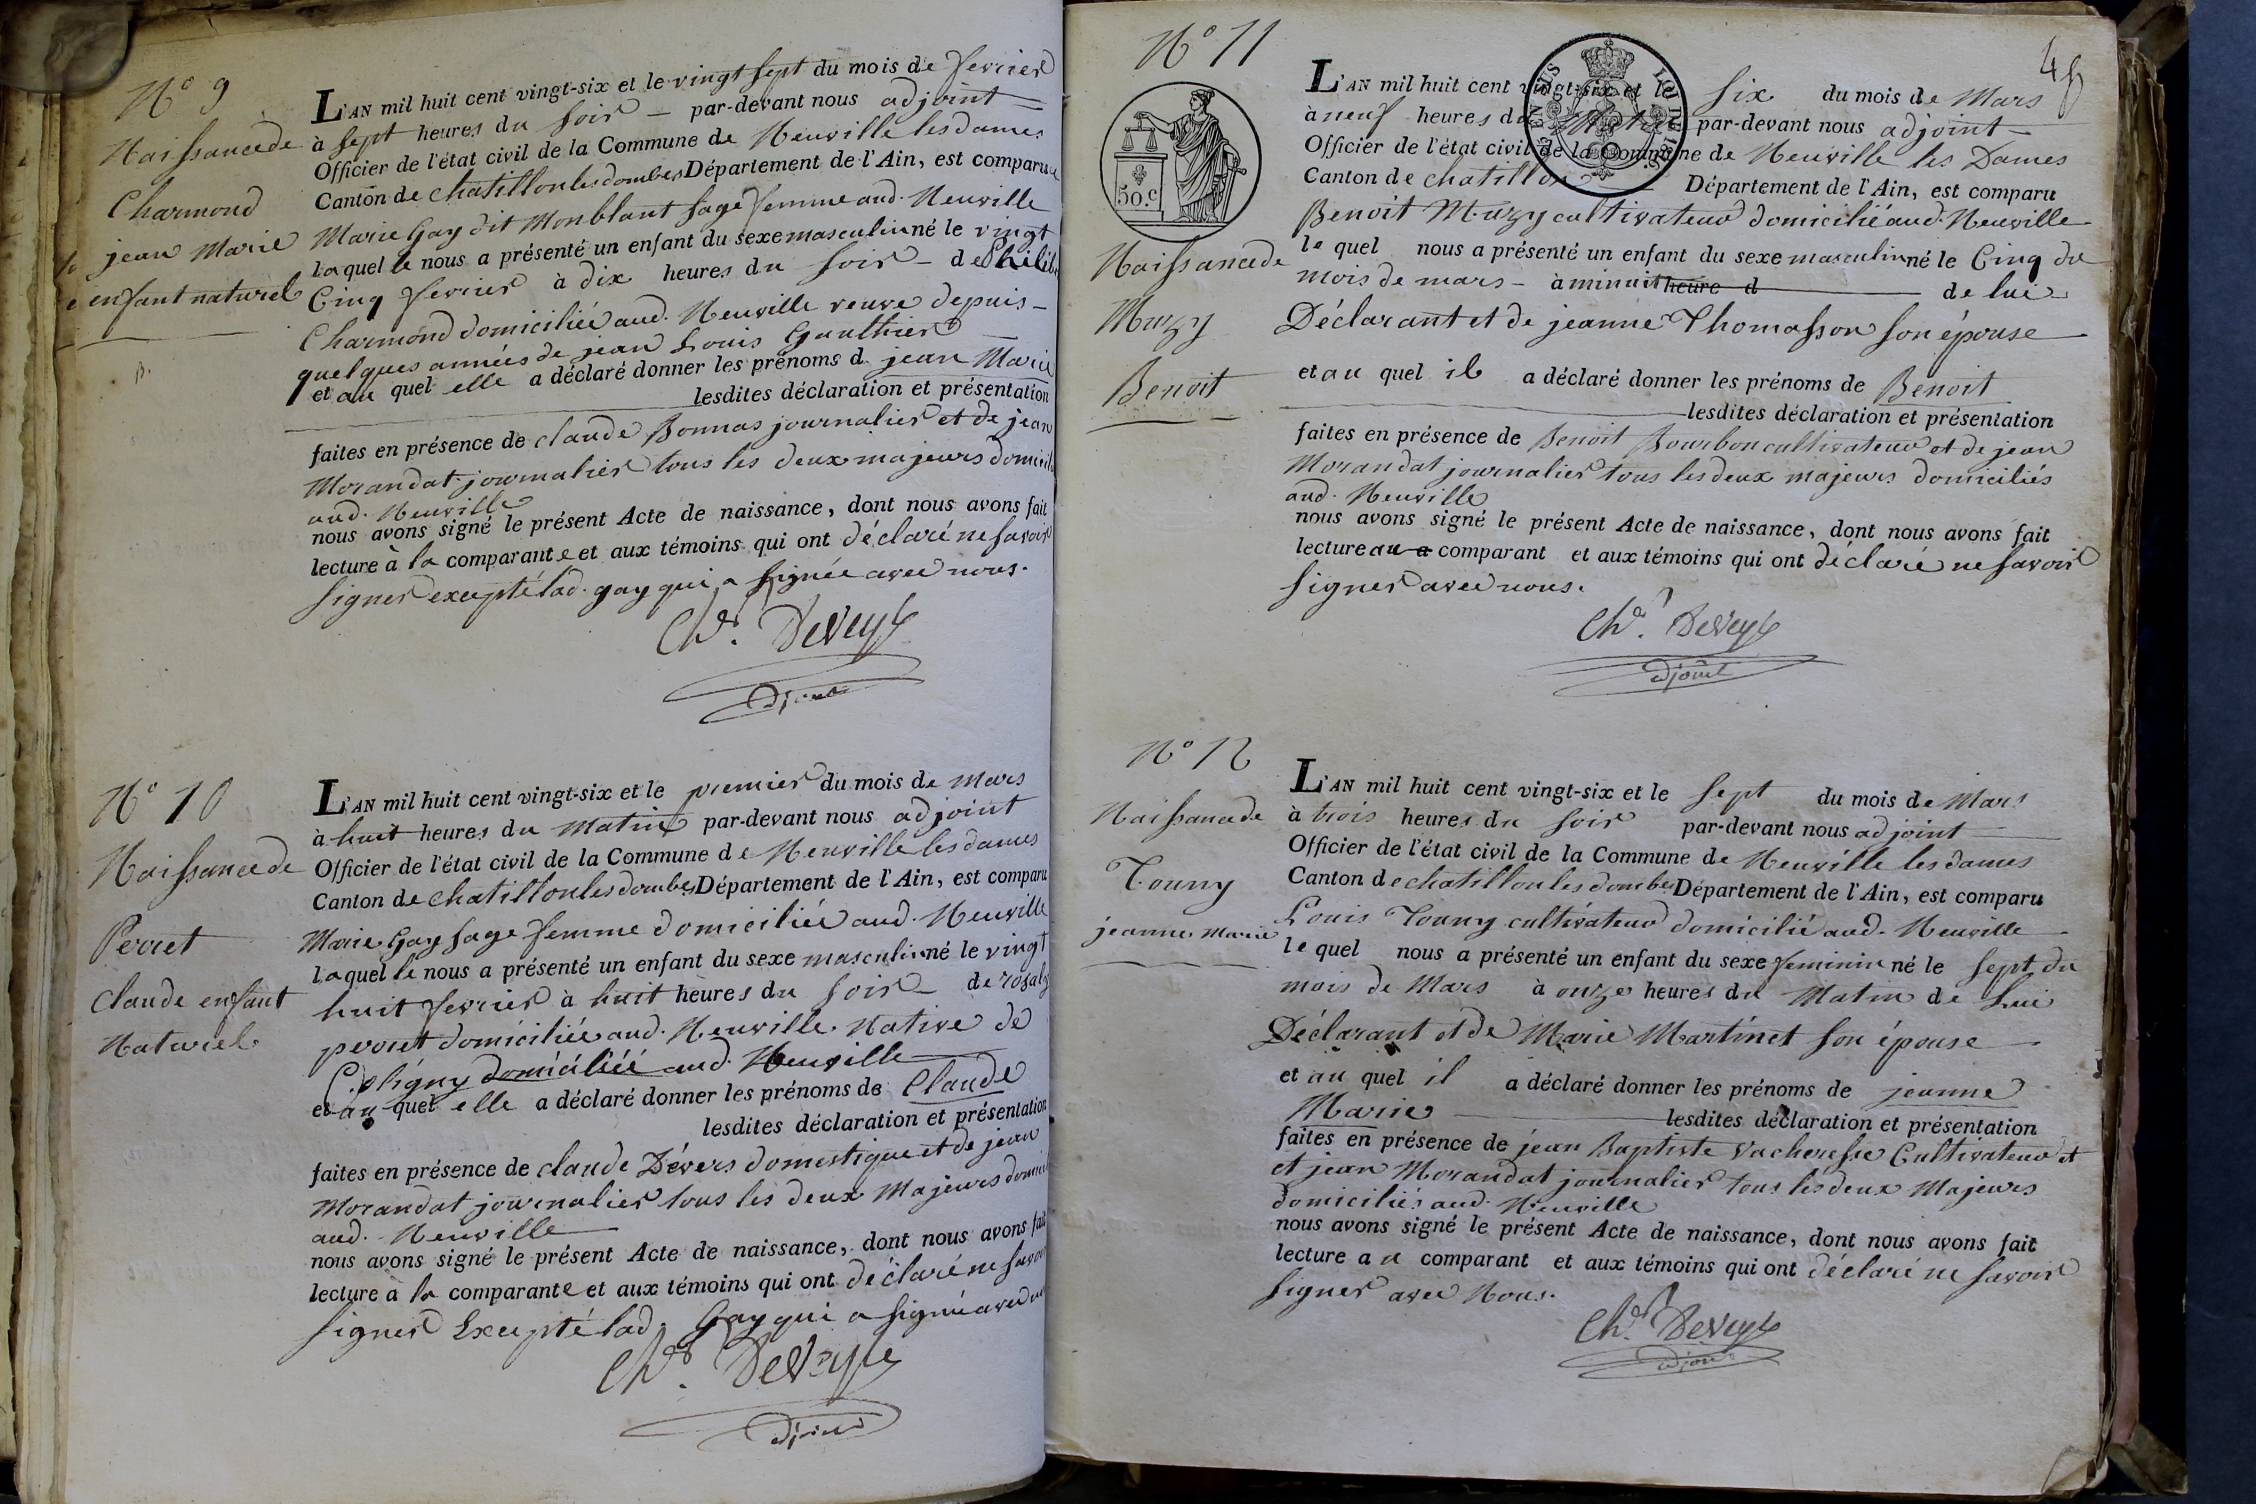 N.° 9
Naissance de
Charmond
jean Marie
enfant naturel
L'AN mil huit cent vingt-six et le vingt sept du mois de fevrier
à sept heures du soir — par-devant nous adjoint
Officier de l'état civil de la Commune de Neuville les dames
Canton de chatillon les dombes Département de l'Ain, est comparue
Marie Gay dit Monblant sage femme aud. Neuville
laquelle nous a présenté un enfant du sexe masculin né le vingt
Cinq fevrier à dix heures du soir — de
Charmond domiciliée aud. Neuville veuve depuis —
quelques années de jean Louis Gaulthier
et au quel elle a déclaré donner les prénoms d jean Marie
lesdites déclaration et présentation
faites en présence de claude Bonnas journalier et de jean
Morandat journalier tous les deux majeurs
aud. Neuville
nous avons signé le présent Acte de naissance, dont nous avons fait
lecture à la comparante et aux témoins qui ont déclaré ne savoir
signer excepté lad. gay qui a signée avec nous.
Ch.er Deveyle
adjoint
N.° 10
Naissance de
Perret
Claude enfant
Naturel
L'AN mil huit cent vingt-six et le premier du mois de Mars
à huit heures du Matin par-devant nous adjoint
Officier de l'état civil de la Commune de Neuville les dames
Canton de chatillon les dombes Département de l'Ain, est comparu
Marie Gay sage femme domiciliée aud. Neuville
laquelle nous a présenté un enfant du sexe masculin né le vingt
huit fevrier à huit heures du soir — de
perret domiciliée aud. Neuville. Native de
Coligny domiciliée aud. Neuville
et au quel elle a déclaré donner les prénoms de Claude
lesdites déclaration et présentation
faites en présence de claude Dévers domestique et de jean
Morandat journalier tous les deux Majeurs
aud. Neuville
nous avons signé le présent Acte de naissance, dont nous avons fait
lecture à la comparante et aux témoins qui ont déclaré ne savoir
signer Excepté lad. Gay qui a signée avec
Ch.er Deveyle
adjoint
48
N.° 11
50.c
Naissance de
Muzy
Benoit
L'AN mil huit cent vingt-six et le six du mois de Mars
à neuf heures du Matin par-devant nous adjoint —
Officier de l'état civil de la Commune de Neuville les Dames
Canton de chatillon Département de l'Ain, est comparu
Benoit Muzy cultivateur domicilié aud. Neuville
le quel nous a présenté un enfant du sexe masculin né le Cinq du
mois de mars — à minuit heure d de lui
Déclarant et de jeanne Thomasson son épouse
et au quel il a déclaré donner les prénoms de Benoit
lesdites déclaration et présentation
faites en présence de Benoit Bourbon cultivateur et de jean
Morandat journalier tous les deux majeurs domiciliés
aud. Neuville
nous avons signé le présent Acte de naissance, dont nous avons fait
lecture au a comparant et aux témoins qui ont déclaré ne savoir
signer avec nous.
Ch.er Deveyle
adjoint
N.° 12
Naissance de
Touny
jeanne Marie
L'AN mil huit cent vingt-six et le sept du mois de Mars
à trois heures du soir par-devant nous adjoint
Officier de l'état civil de la Commune de Neuville les dames
Canton de chatillon les dombes Département de l'Ain, est comparu
Louis Touny cultivateur domicilié aud. Neuville
le quel nous a présenté un enfant du sexe feminin né le sept du
mois de Mars à onze heures du Matin de Lui
Déclarant et de Marie Martinet son épouse
et au quel il a déclaré donner les prénoms de jeanne
Marie lesdites déclaration et présentation
faites en présence de jean Baptiste Vacheresse Cultivateur et
et jean Morandat journalier tous les deux Majeurs
domiciliés aud. Neuville
nous avons signé le présent Acte de naissance, dont nous avons fait
lecture au comparant et aux témoins qui ont déclaré ne savoir
signer avec Nous.
Ch.er Deveyle
adjoint